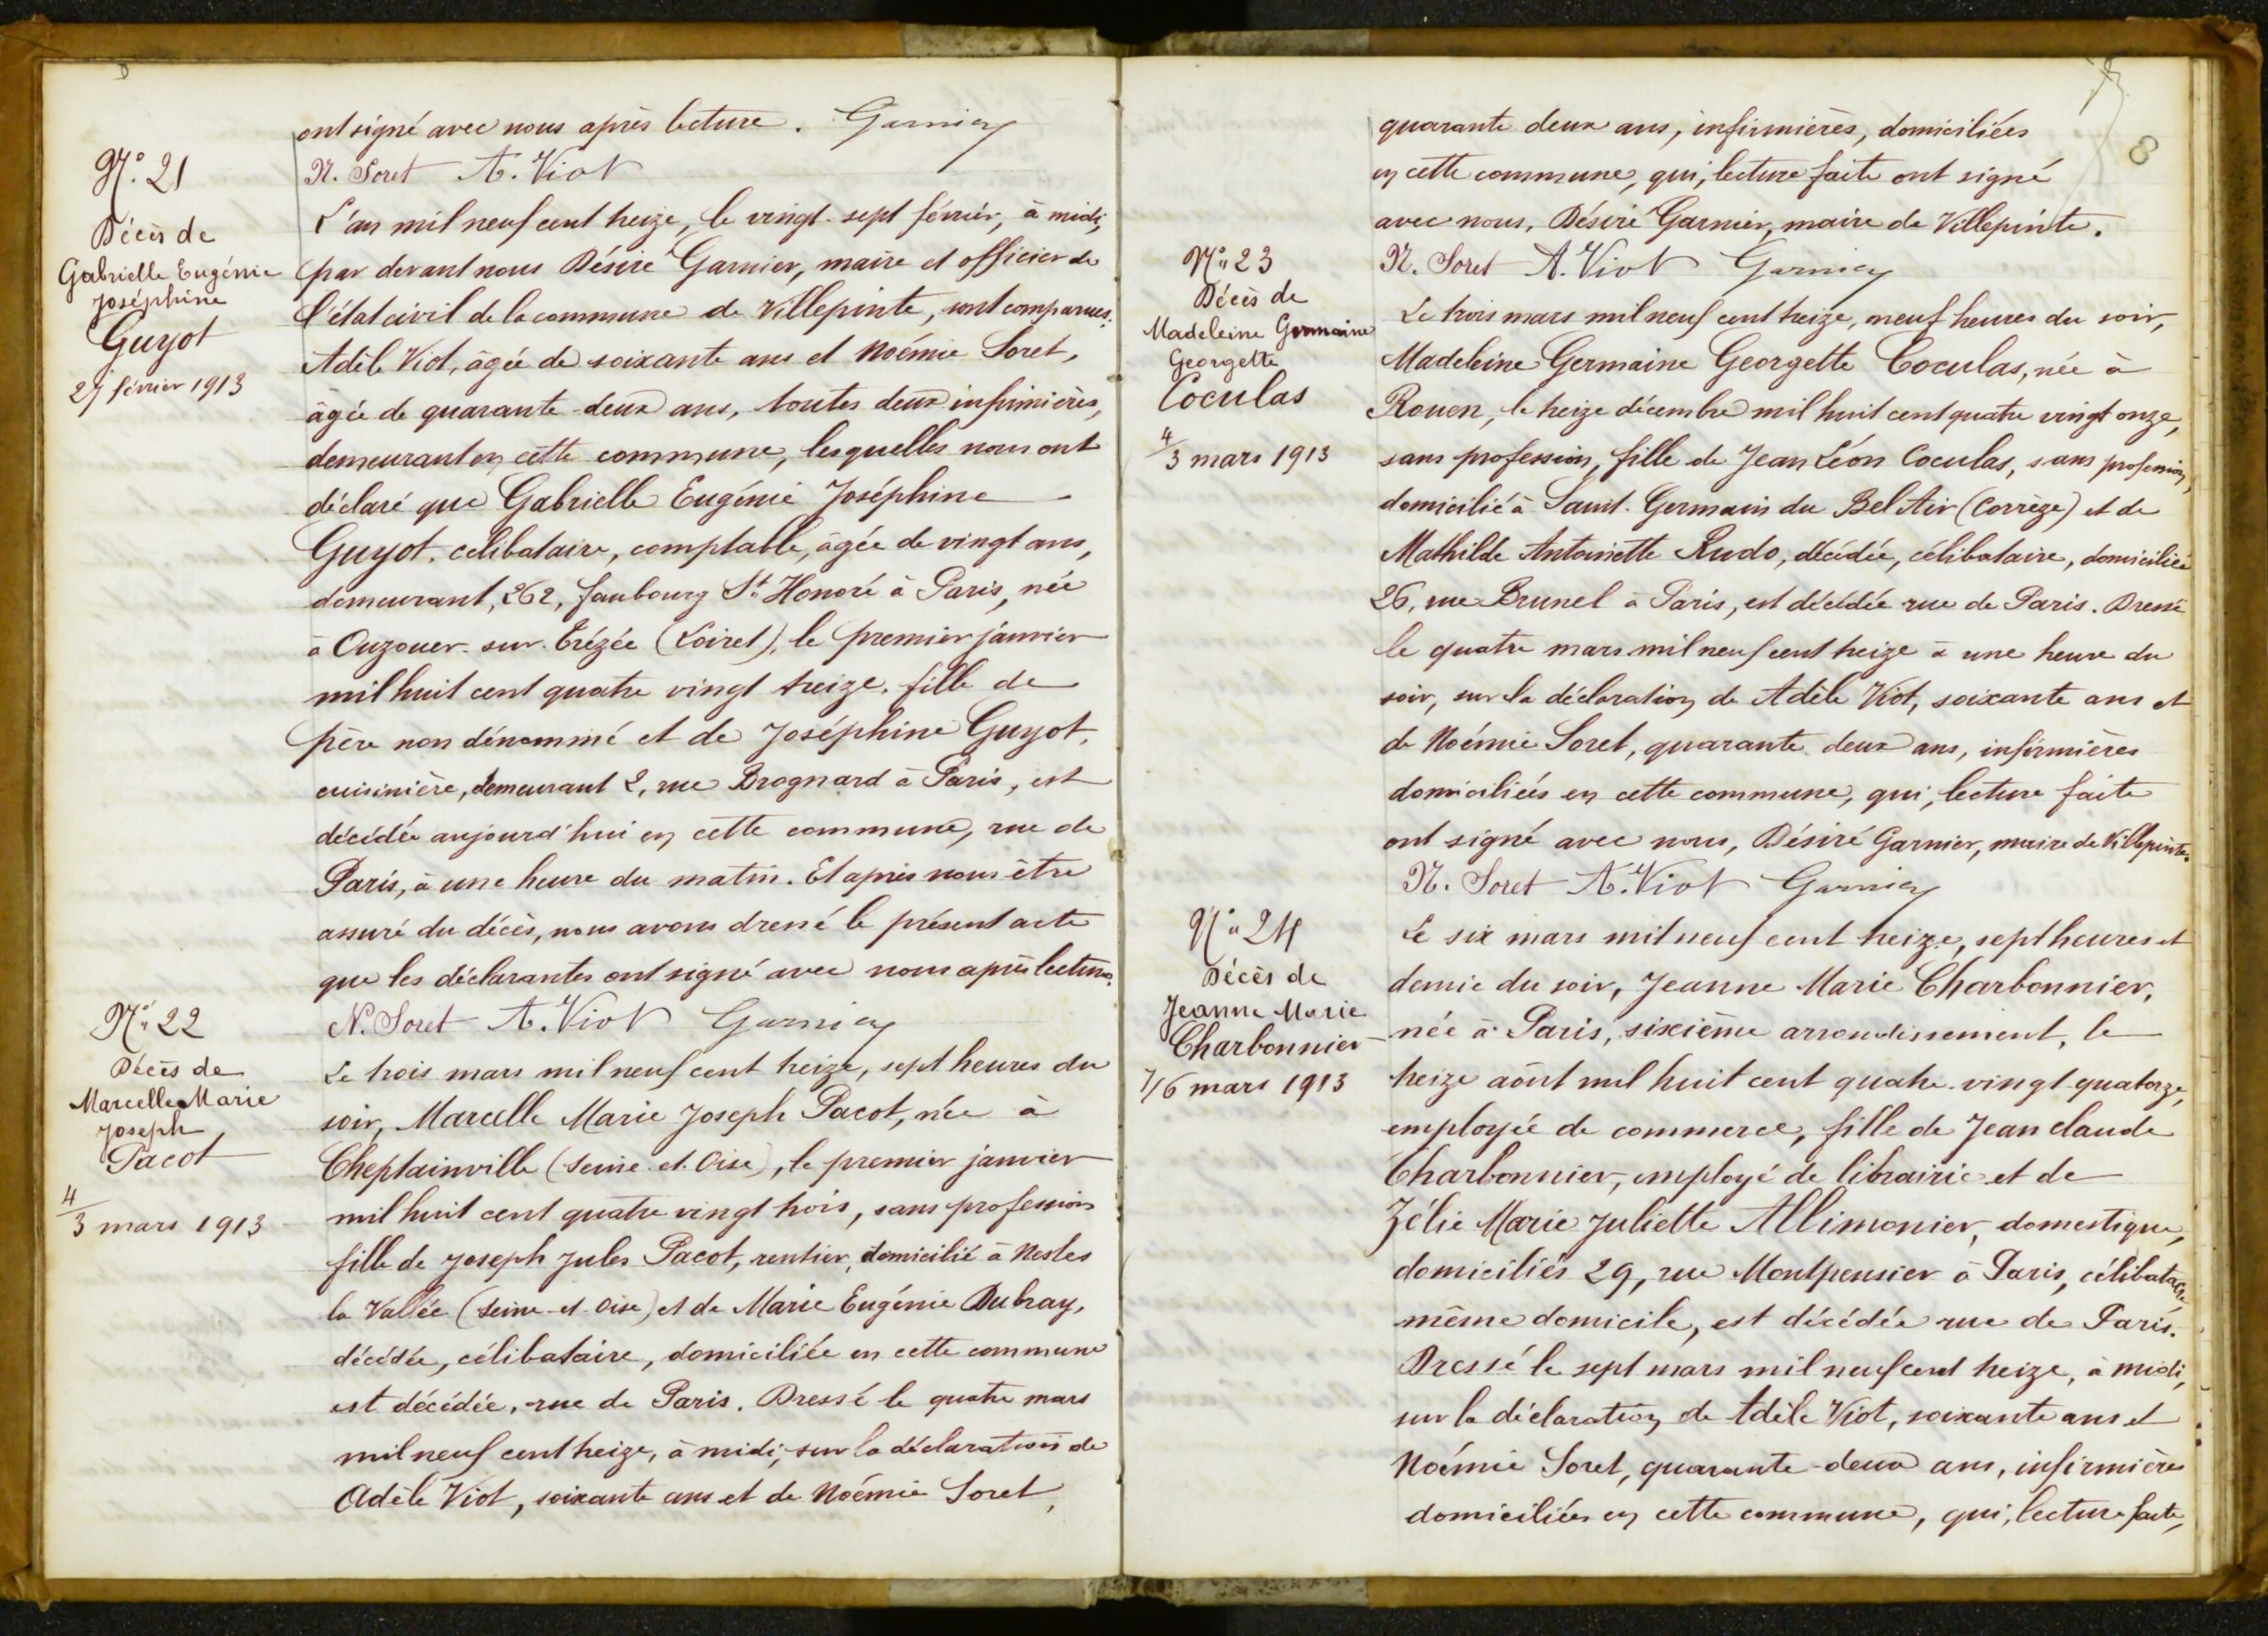 ont signé avec nous après lecture. Garnier
N. Soret A. Viot
N° 21
Décès de
Gabrielle Eugénie
Joséphine
Guyot
27 février 1913
L'an mil neuf cent treize, le vingt-sept février, à midi,
par devant nous Désiré Garnier, maire et officier de
l'état civil de la commune de Villepinte, sont comparues:
Adèle Viot, âgée de soixante ans et Noémie Soret,
âgée de quarante-deux ans, toutes deux infirmières,
demeurant en cette commune, lesquelles nous ont
déclaré que Gabrielle Eugénie Joséphine
Guyot, célibataire, comptable, âgée de vingt ans,
demeurant, 262, faubourg St Honoré à Paris, née
à Ouzouer-sur-Trézée (Loiret), le premier janvier
mil huit cent quatre vingt treize, fille de
père non dénommé et de Joséphine Guyot,
cuisinière, demeurant 2, rue Brognard à Paris, est
décédée aujourd'hui en cette commune, rue de
Paris, à une heure du matin. Et après nous être
assuré du décès, nous avons dressé le présent acte
que les déclarantes ont signé avec nous après lecture.
N. Soret A. Viot Garnier
N° 22
Décès de
Marcelle Marie
Joseph
Pacot
4/3 mars 1913
Le trois mars mil neuf cent treize, sept heures du
soir, Marcelle Marie Joseph Pacot, née à
Cheptainville (Seine-et-Oise), le premier janvier
mil huit cent quatre vingt trois, sans profession
fille de Joseph Jules Pacot, rentier, domicilié à Nesles
la Vallée (Seine-et-Oise) et de Marie Eugénie Dubray,
décédée, célibataire, domiciliée en cette commune
est décédée, rue de Paris. Dressé le quatre mars
mil neuf cent treize, à midi, sur la déclaration de
Adèle Viot, soixante ans et de Noémie Soret,
8
quarante deux ans, infirmières, domiciliées
en cette commune, qui, lecture faite ont signé
avec nous, Désiré Garnier, maire de Villepinte.
N. Soret A. Viot Garnier
N° 23
Décès de
Madeleine Germaine
Georgette
Coculas
4/3 mars 1913
Le trois mars mil neuf cent treize, neuf heures du soir,
Madeleine Germaine Georgette Coculas, née à
Rouen, le treize décembre mil huit cent quatre vingt onze,
sans profession, fille de Jean Léon Coculas, sans profession,
domicilié à Saint-Germain du Bel Air (Corrèze) et de
Mathilde Antoinette Rudo, décédée, célibataire, domiciliée
26, rue Brunel à Paris, est décédée rue de Paris. Dressé
le quatre mars mil neuf cent treize à une heure du
soir, sur la déclaration de Adèle Viot, soixante ans et
de Noémie Soret, quarante deux ans, infirmières
domiciliées en cette commune, qui, lecture faite
ont signé avec nous, Désiré Garnier, maire de Villepinte.
N. Soret A. Viot Garnier
N° 24
Décès de
Jeanne Marie
Charbonnier
7/6 mars 1913
Le six mars mil neuf cent treize, sept heures et
demie du soir, Jeanne Marie Charbonnier,
née à Paris, sixième arrondissement, le
treize août mil huit cent quatre-vingt-quatorze,
employée de commerce, fille de Jean Claude
Charbonnier, employé de librairie et de
Zélie Marie Juliette Allimonier, domestique,
domiciliés 29, rue Montpensier à Paris, célibataire
même domicile, est décédée rue de Paris.
Dressé le sept mars mil neuf cent treize, à midi,
sur la déclaration de Adèle Viot, soixante ans et
Noémie Soret, quarante-deux ans, infirmières
domiciliées en cette commune, qui, lecture faite,